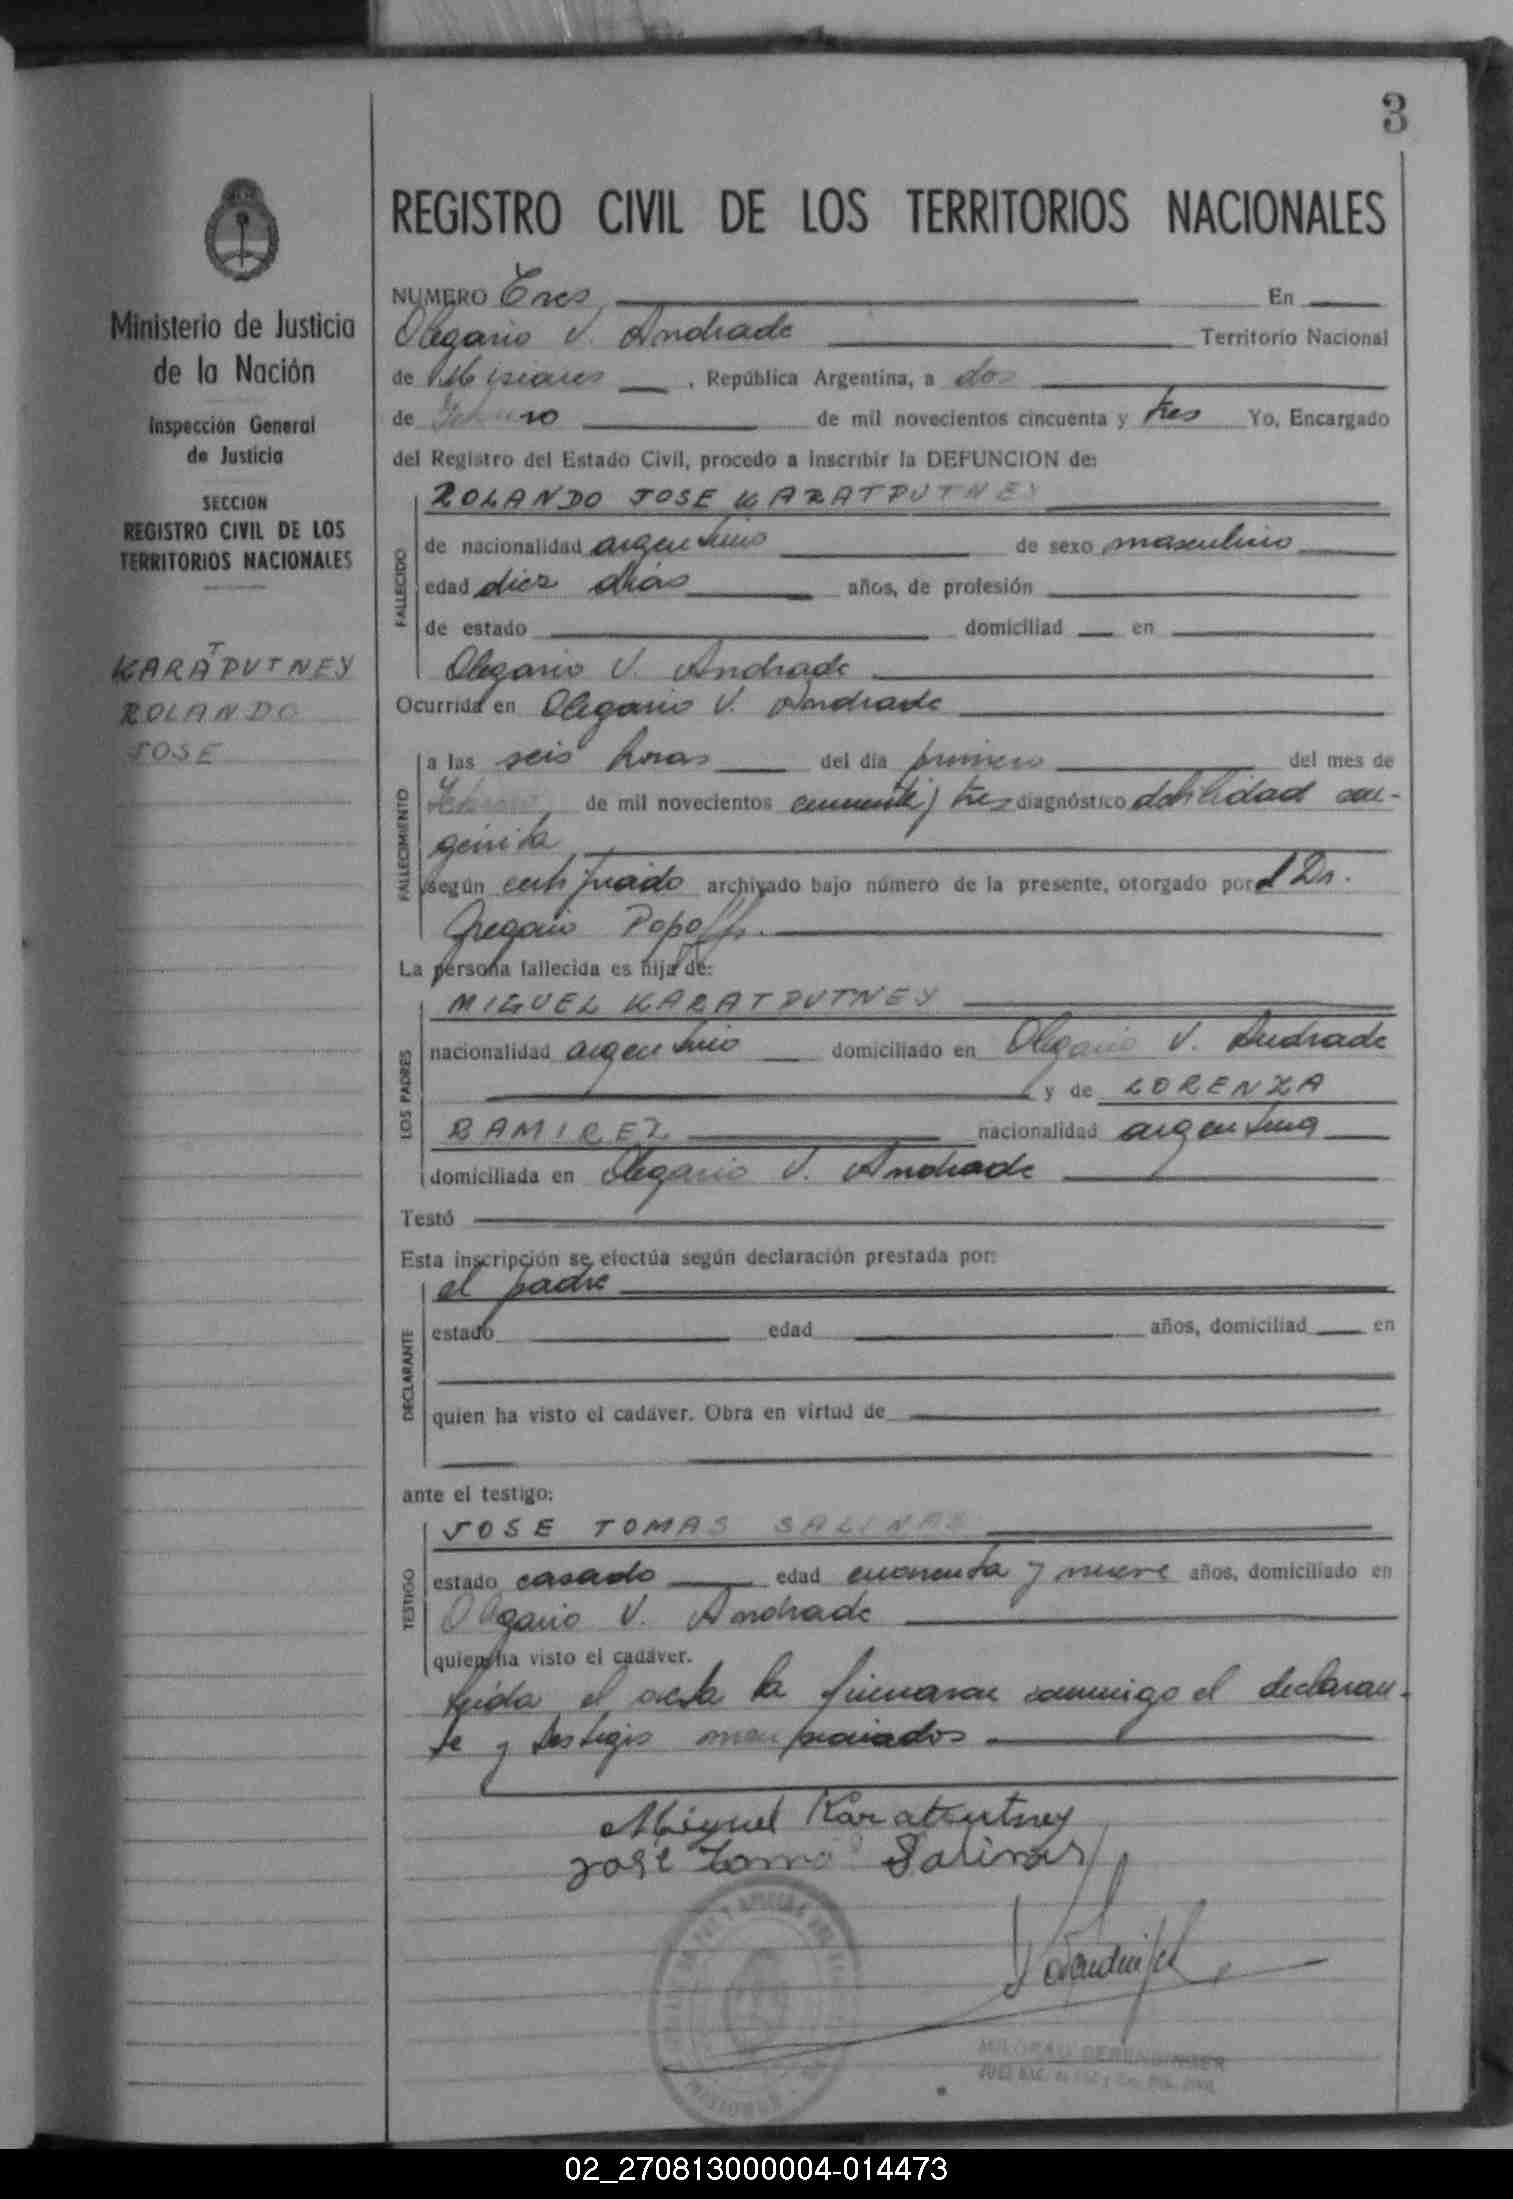 3
Ministerio de Justicia
de la Nación
Inspección General
de Justicia
SECCION
REGISTRO CIVIL DE LOS
TERRITORIOS NACIONALES
KARATPUTNEY
ROLANDO
JOSE
REGISTRO CIVIL DE LOS TERRITORIOS NACIONALES
NUMERO Tres En
Olegario V. Andrade Territorio Nacional
de Misiones , República Argentina, a dos
de Febrero de mil novecientos cincuenta y tres Yo, Encargado
del Registro del Estado Civil, procedo a inscribir la DEFUNCION de:
FALLECIDO
ROLANDO JOSE KARATPUTNEY
de nacionalidad argentino de sexo masculino
edad diez dias años, de profesión
de estado domiciliad en
Olegario V. Andrade
Ocurrida en Olegario V. Andrade
FALLECIMIENTO
a las seis horas del día primero del mes de
Febrero de mil novecientos cincuenta y tres diagnóstico debilidad con-
génita
según certificado archivado bajo número de la presente, otorgado por el Dr.
Gregorio Popoff.
La persona fallecida es hija de:
LOS PADRES
MIGUEL KARATPUTNEY
nacionalidad argentino domiciliado en Olegario V. Andrade
y de LORENZA
RAMIREZ nacionalidad argentina
domiciliada en Olegario V. Andrade
Testó
Esta inscripción se efectúa según declaración prestada por:
DECLARANTE
el padre
estado edad años, domiciliad en
quien ha visto el cadáver. Obra en virtud de
ante el testigo:
TESTIGO
JOSE TOMAS SALINAS
estado casado edad cuarenta y nueve años, domiciliado en
Olegario V. Andrade
quien ha visto el cadáver.
Leída el acta la firmaron conmigo el declaran-
te y testigo mencionados
Miguel Karatputney
José Tomas Salinas
02_270813000004-014473